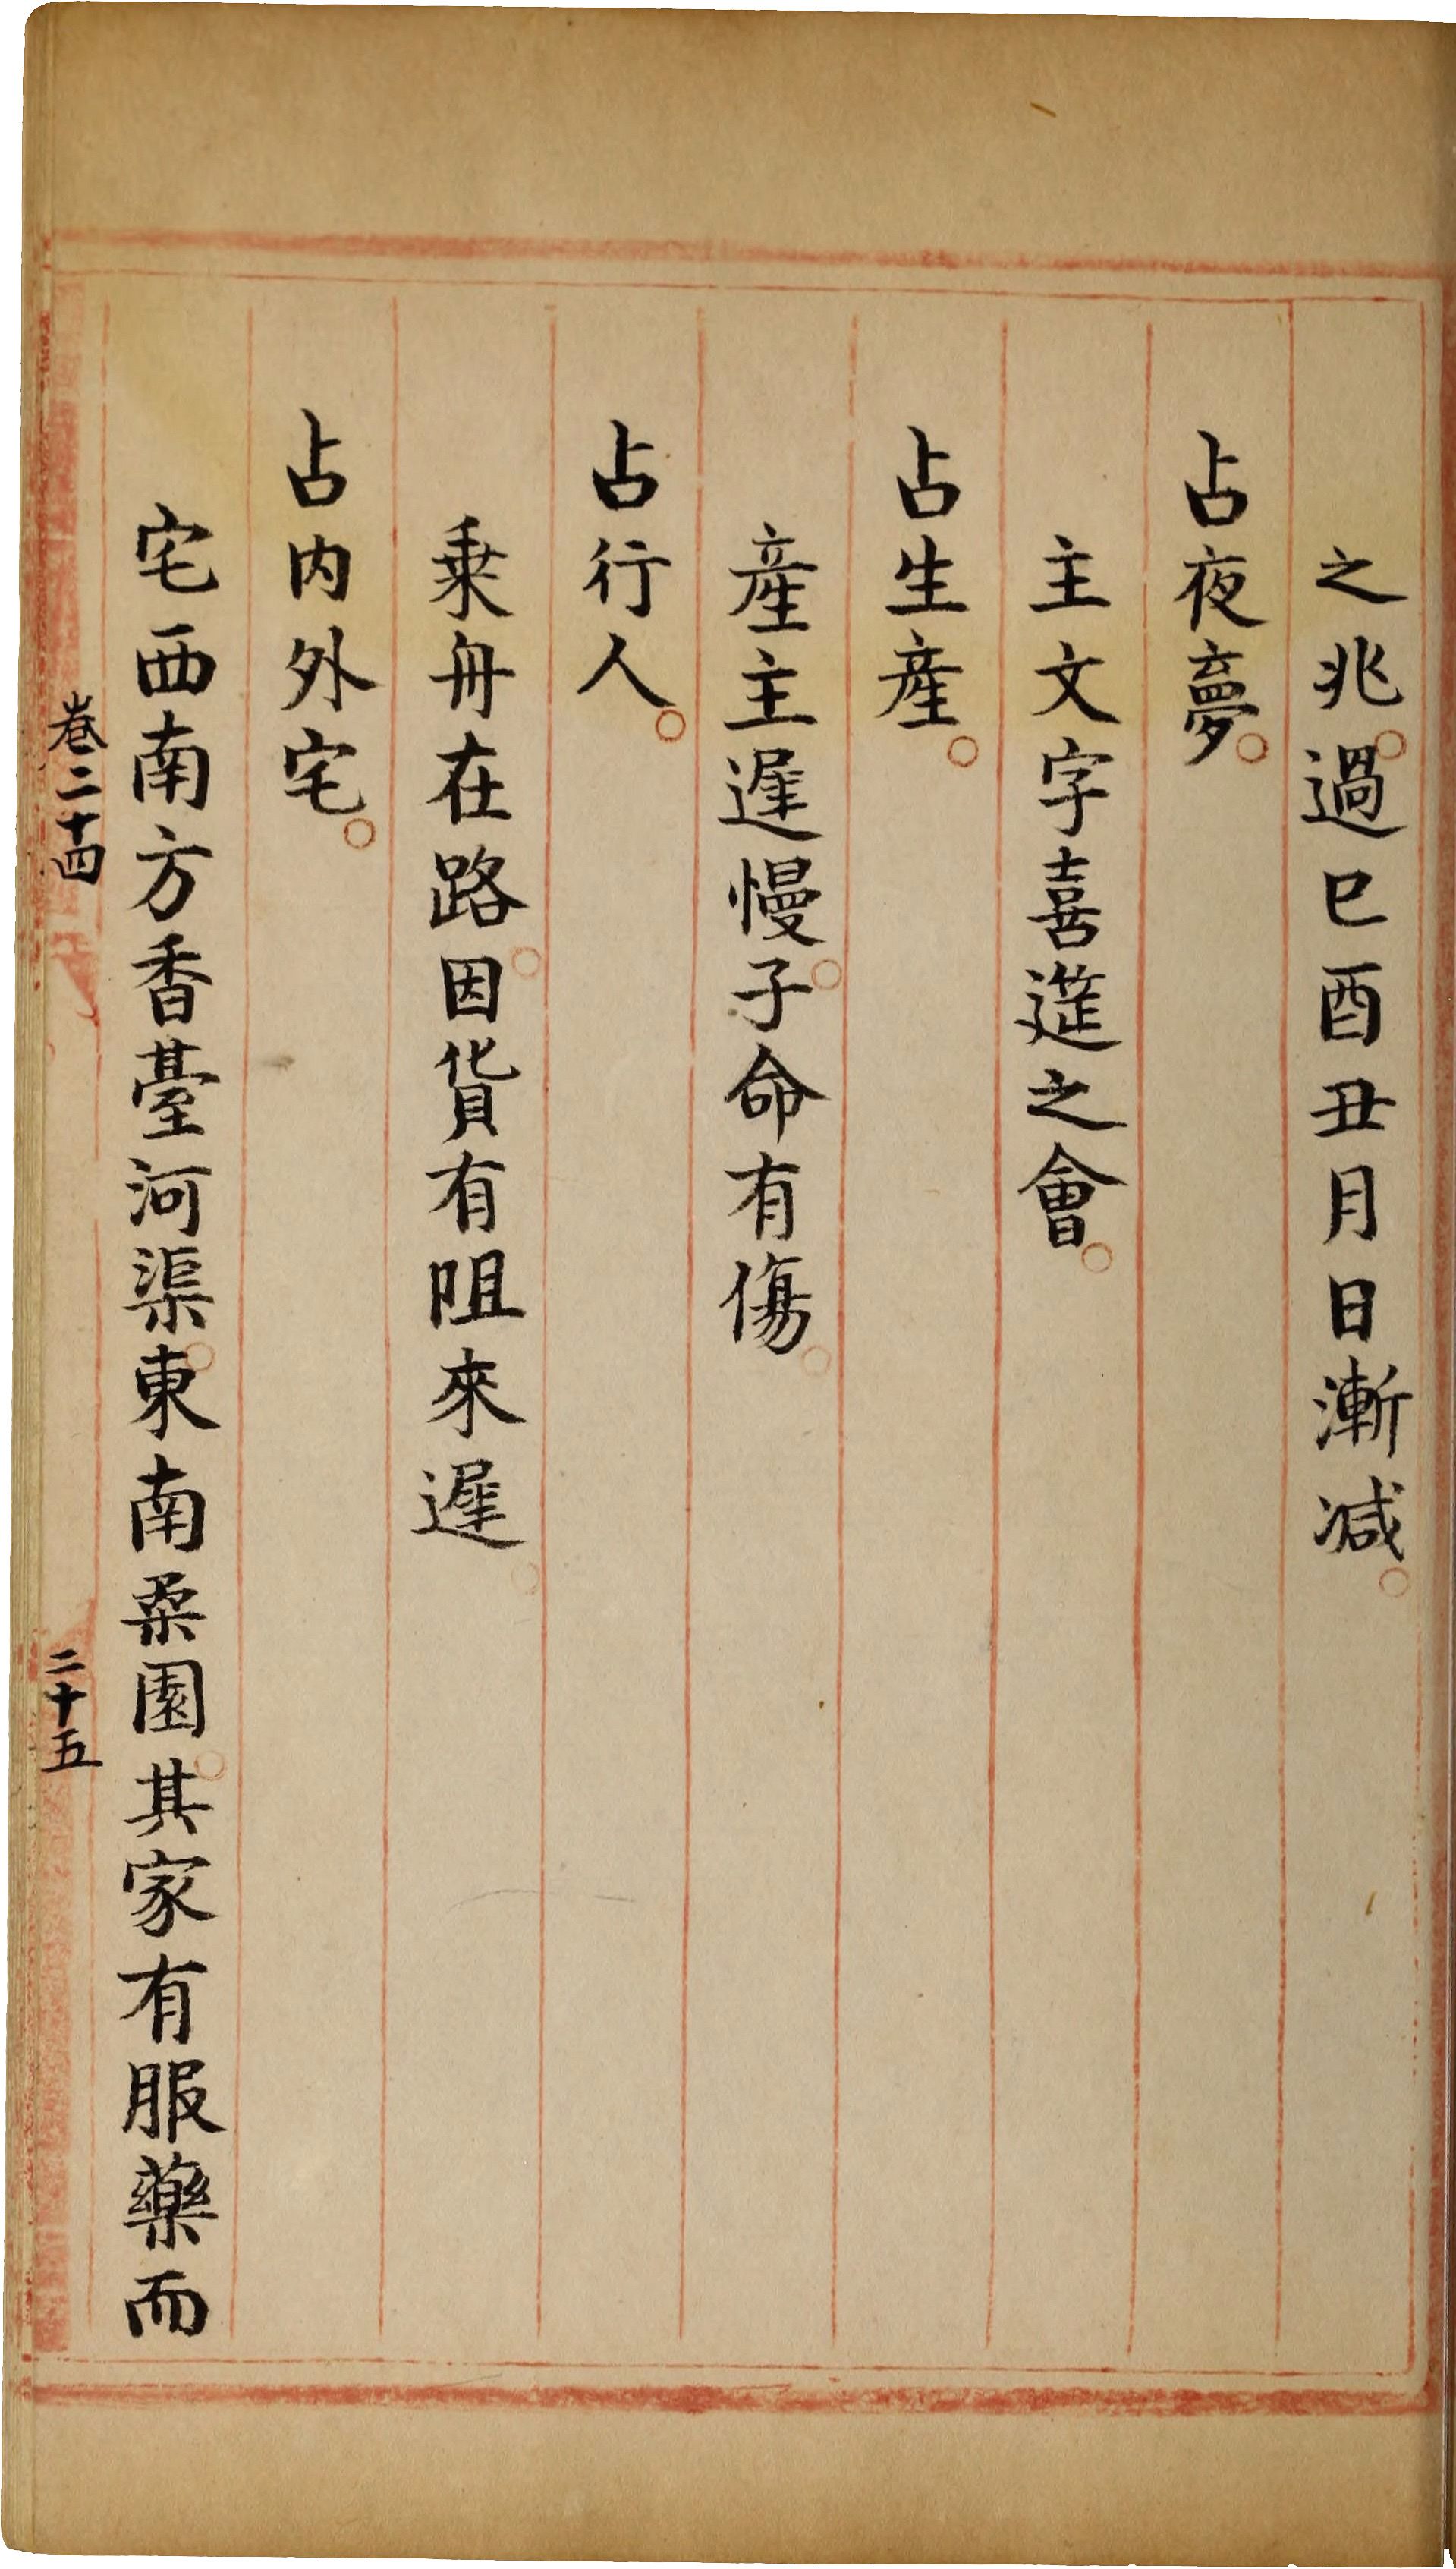 之兆。過巳酉丑月日漸减。
占夜夢。
主文字喜筵之會。
占生産。
産主遲慢。子命有傷。
占行人。
乗舟在路。因貨有阻來遲。
占内外宅。
宅西南方香臺河渠。東南柔園。其家有服藥而
卷二十四
二十五